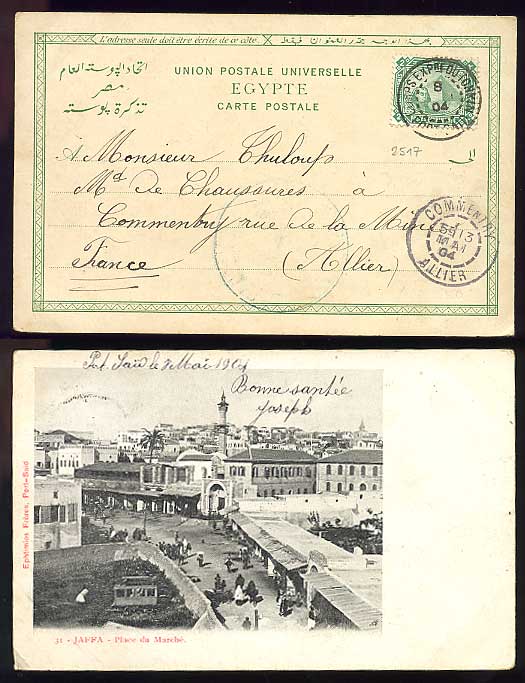 L'adresse seule doit être écrite de ce côté.
اتحاد البوستة العام
مصر
تذكرة بوستة
UNION POSTALE UNIVERSELLE
EGYPTE
CARTE POSTALE
8
04
2517
الى
A Monsieur Thuloup
Md de Chaussures à
Commentry rue de la Mine
France (Allier)
COMMENTRY
13
MAI
04
ALLIER
Pt. Saïd le 7 Mai 1904
Bonne santée
Joseph
Ephtimios Frères, Port-Said
31 - JAFFA - Place du Marché.